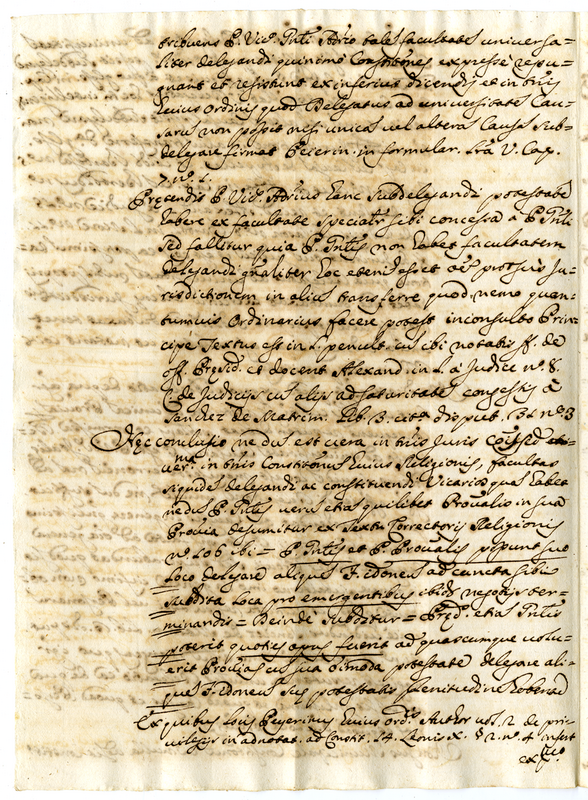 tribuens P. Vic.º Prlis Adrio tales facultates universa=
liter delegandi quinimo Constitones expresse repu=
gnant et resistunt ex inferius dicendis et in tris
huius Ordinis quod Delegatus ad universitates Cau=
sarum non possit nisi unicas vel alteras Causas sub=
delegare firmat Peierin. in formular. lra V. Cap.
7. nº. 1.
Precendis P. Vic.º Adrius hanc subdelegandi potestate
habere ex facultate specialr sibi concessa a P. Prli
sed fallitur quia P. Prlis non habet facultatem
delegandi gnaliter hoc etenim esset
risdictionem in alios transferre quod nemo quan=
tumvis Ordinarius facere potest inconsulto Prin=
cipe Textus est in L. penult. cum ibi notatis ff. de
off. Presid. et docent Alexand. in L. a Judice nº. 8.
C. de Judicijs cum alijs ad saturitatem congestis a
Sanchez de Matrim. lib. 3. disput. 31. nº. 3
Hec conclusio ne dum est vera in tris Juris
in tris Constitonus huius Religionis, facultas
siquidem delegandi ac constituendi Vicarios quas habet
nedum P. Prlis verum etiam quilibet Provalis in sua
Provia desumitur ex Textu Correctorij Religionis
nº 206 ibi = P. Prlis et P. Provalis possunt suo
loco delegare aliquem Idoneum ad cuncta sibi
subdita loca pro emergentibus ibidem negotijs ter=
minandis = Deinde subditur = Pred. etiam Prlis
poterit quoties opus fuerit ad quascumque volu=
erit Provias cum sua oimoda potestate delegare ali=
quem Idoneum sue potestatis plenitudine
Ex quibus locis Peyerinus huius ordis Author vol. 2 de pri=
vilegijs in adnotat. ad Constit. 14. Leonis X. § 2. nº. 4 infert